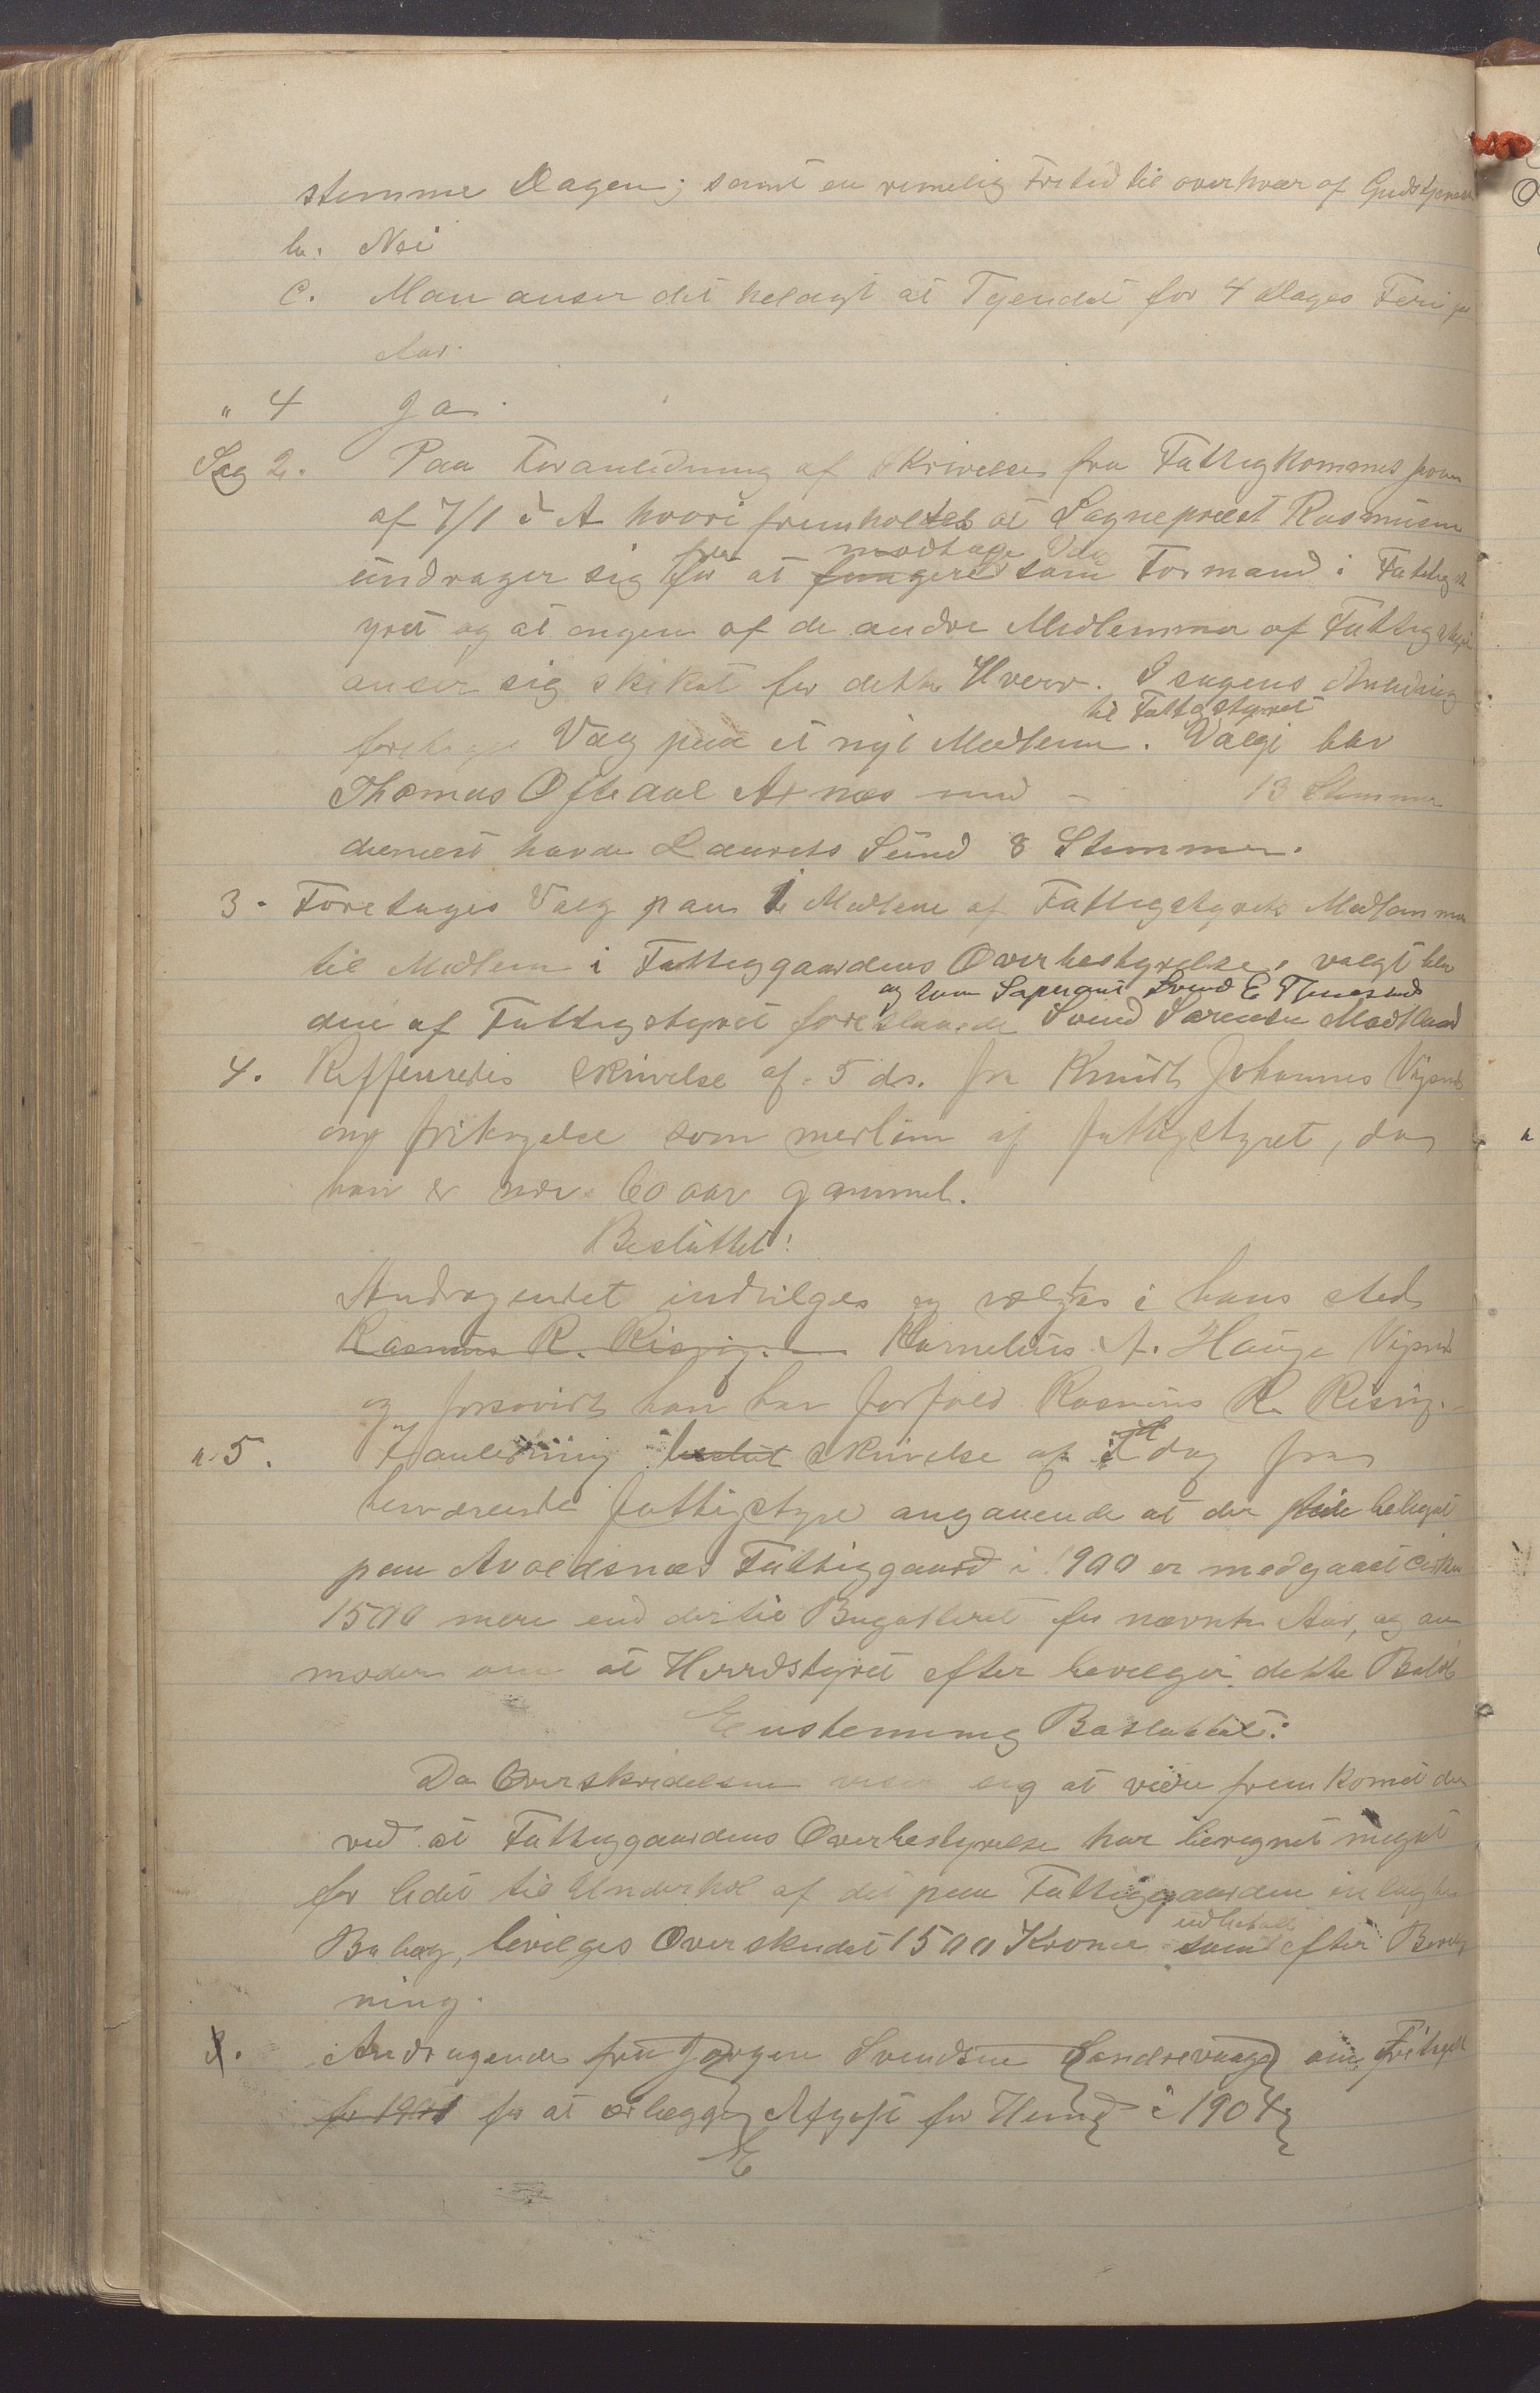 stemme Dagen; samt en rimelig Fritid til overhvær af Gudstjeneste
b. Nei
c. Man anser det helagt at Tjendet for 4 Dages Feri pr
Aar.
" 4 Ja.
Sag 2. Paa Foranledning af Skrivelse fra Fattigkommes
af 7/1 d A hvori fremholdes at Sognepræst Rasmusen
undrager sig fra for at modtage Valg fungere som Formand i Fattigst
yret og at ingen af de andre Medlemmer af Fattigstyret
anser sig skiket for dette Hverv. I sagens Anledning
til Fattigstyret
foretages Valg paa et nyt Medlem. Valgt blev
Thomas Oftedal Axnes med - 13 Stemmer
dernæst havde Laurets Sund 8 Stemmer.
3. Foretages Valg paa 1 Medlem af Fattigstyrets Medlemmer
til Medlem i Fattiggaardens Overbestyrelse, valgt blev
og som Supeant Svend E
den af Fattigstyret foreslaaede Svend Sørensen Madland
4. Refferertes skrivelse af 5 ds. fra Knudt Johannes
om fritagelse som medlem af fattigstyret, da
han er nær 60 aar gammel.
Besluttet:
Andragendet indvilges og vælgtes i hans sted
Rasmus R. Risøig. Kornelius A. Hauge
og forsovidt han har forfald Rasmus R. Risøig.
" 5. I anledning beslut skrivelse af i dag fra
herværende fattigstyre angaaende at der belægt
paa Avaldsnes Fattiggaard i 1900 er medgaaet cirka
1500 mere end dertil Bugetteret for nævnte Aar, og an
moder om at Herrdstyret efter bevilger dette Beløb
Enstemmig Besluttet:
Da Overskridelsen viser sig at være fremkomet der
ved at Fattiggaardens Overbestyrelse har beregnet meget
for lidet til Underhol af det paa Fattiggaarden inlagte
udbetalt
Belæg, bevilges Overskudet 1500 Kroner som efter Bereg
ning.
Andragende fra Jørgen Svendsen Sandrevaag om Fritagelse
for 1901 for at erlægge Afgift for Hund i 1904
E